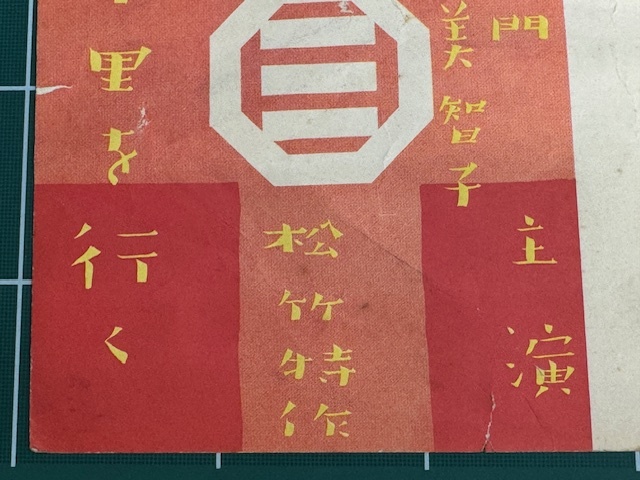 門主演
美智子
松竹特作
里を行く